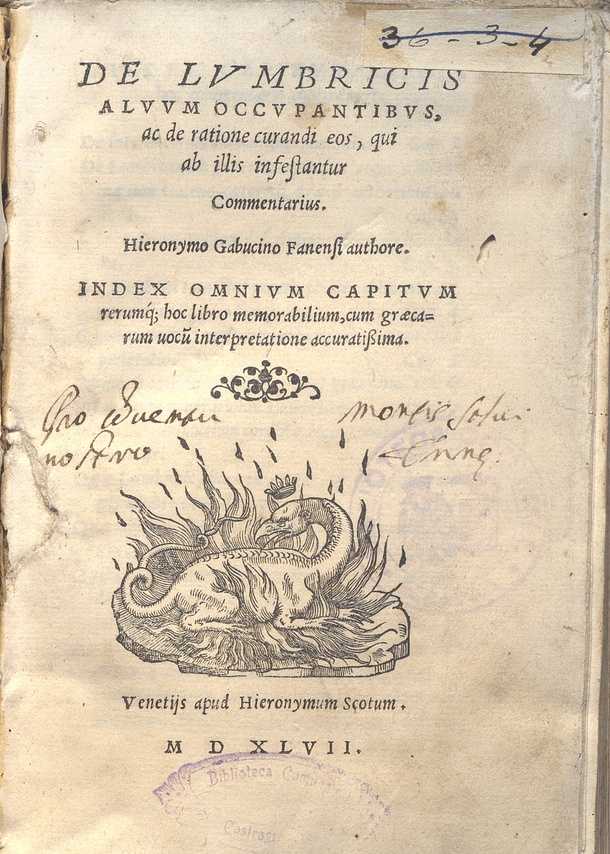 36-3-4
DE LVMBRICIS
ALVVM OCCVPANTIBVS,
ac de ratione curandi eos, qui
ab illis infeſtantur
Commentarius.
Hieronymo Gabucino Fanenſi authore.
INDEX OMNIVM CAPITVM
rerumq́; hoc libro memorabilium, cum græca=
rum uocũ interpretatione accuratißima.
nostro
Venetijs apud Hieronymum Scotum.
M D XLVII.
Biblioteca